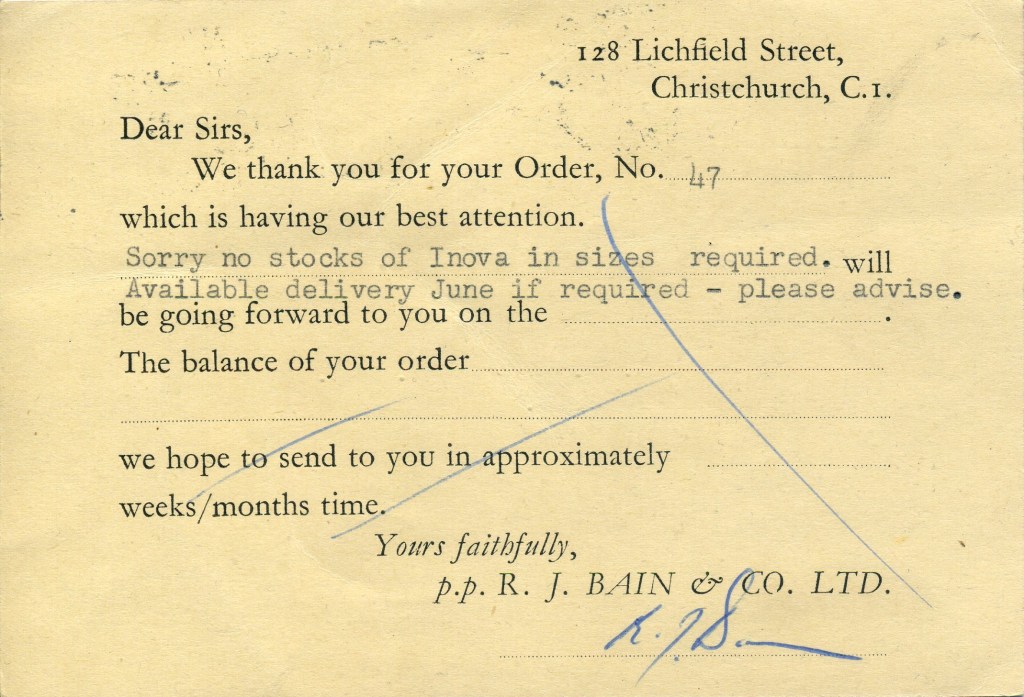 128 Lichfield Street,
Christchurch, C.1.
Dear Sirs,
We thank you for your Order, No. 47
which is having our best attention.
Sorry no stocks of Inova in sizes required. will
Available delivery June if required - please advise.
be going forward to you on the .
The balance of your order
we hope to send to you in approximately
weeks/months time.
Yours faithfully,
p.p. R. J. BAIN & CO. LTD.
R. J. Bain